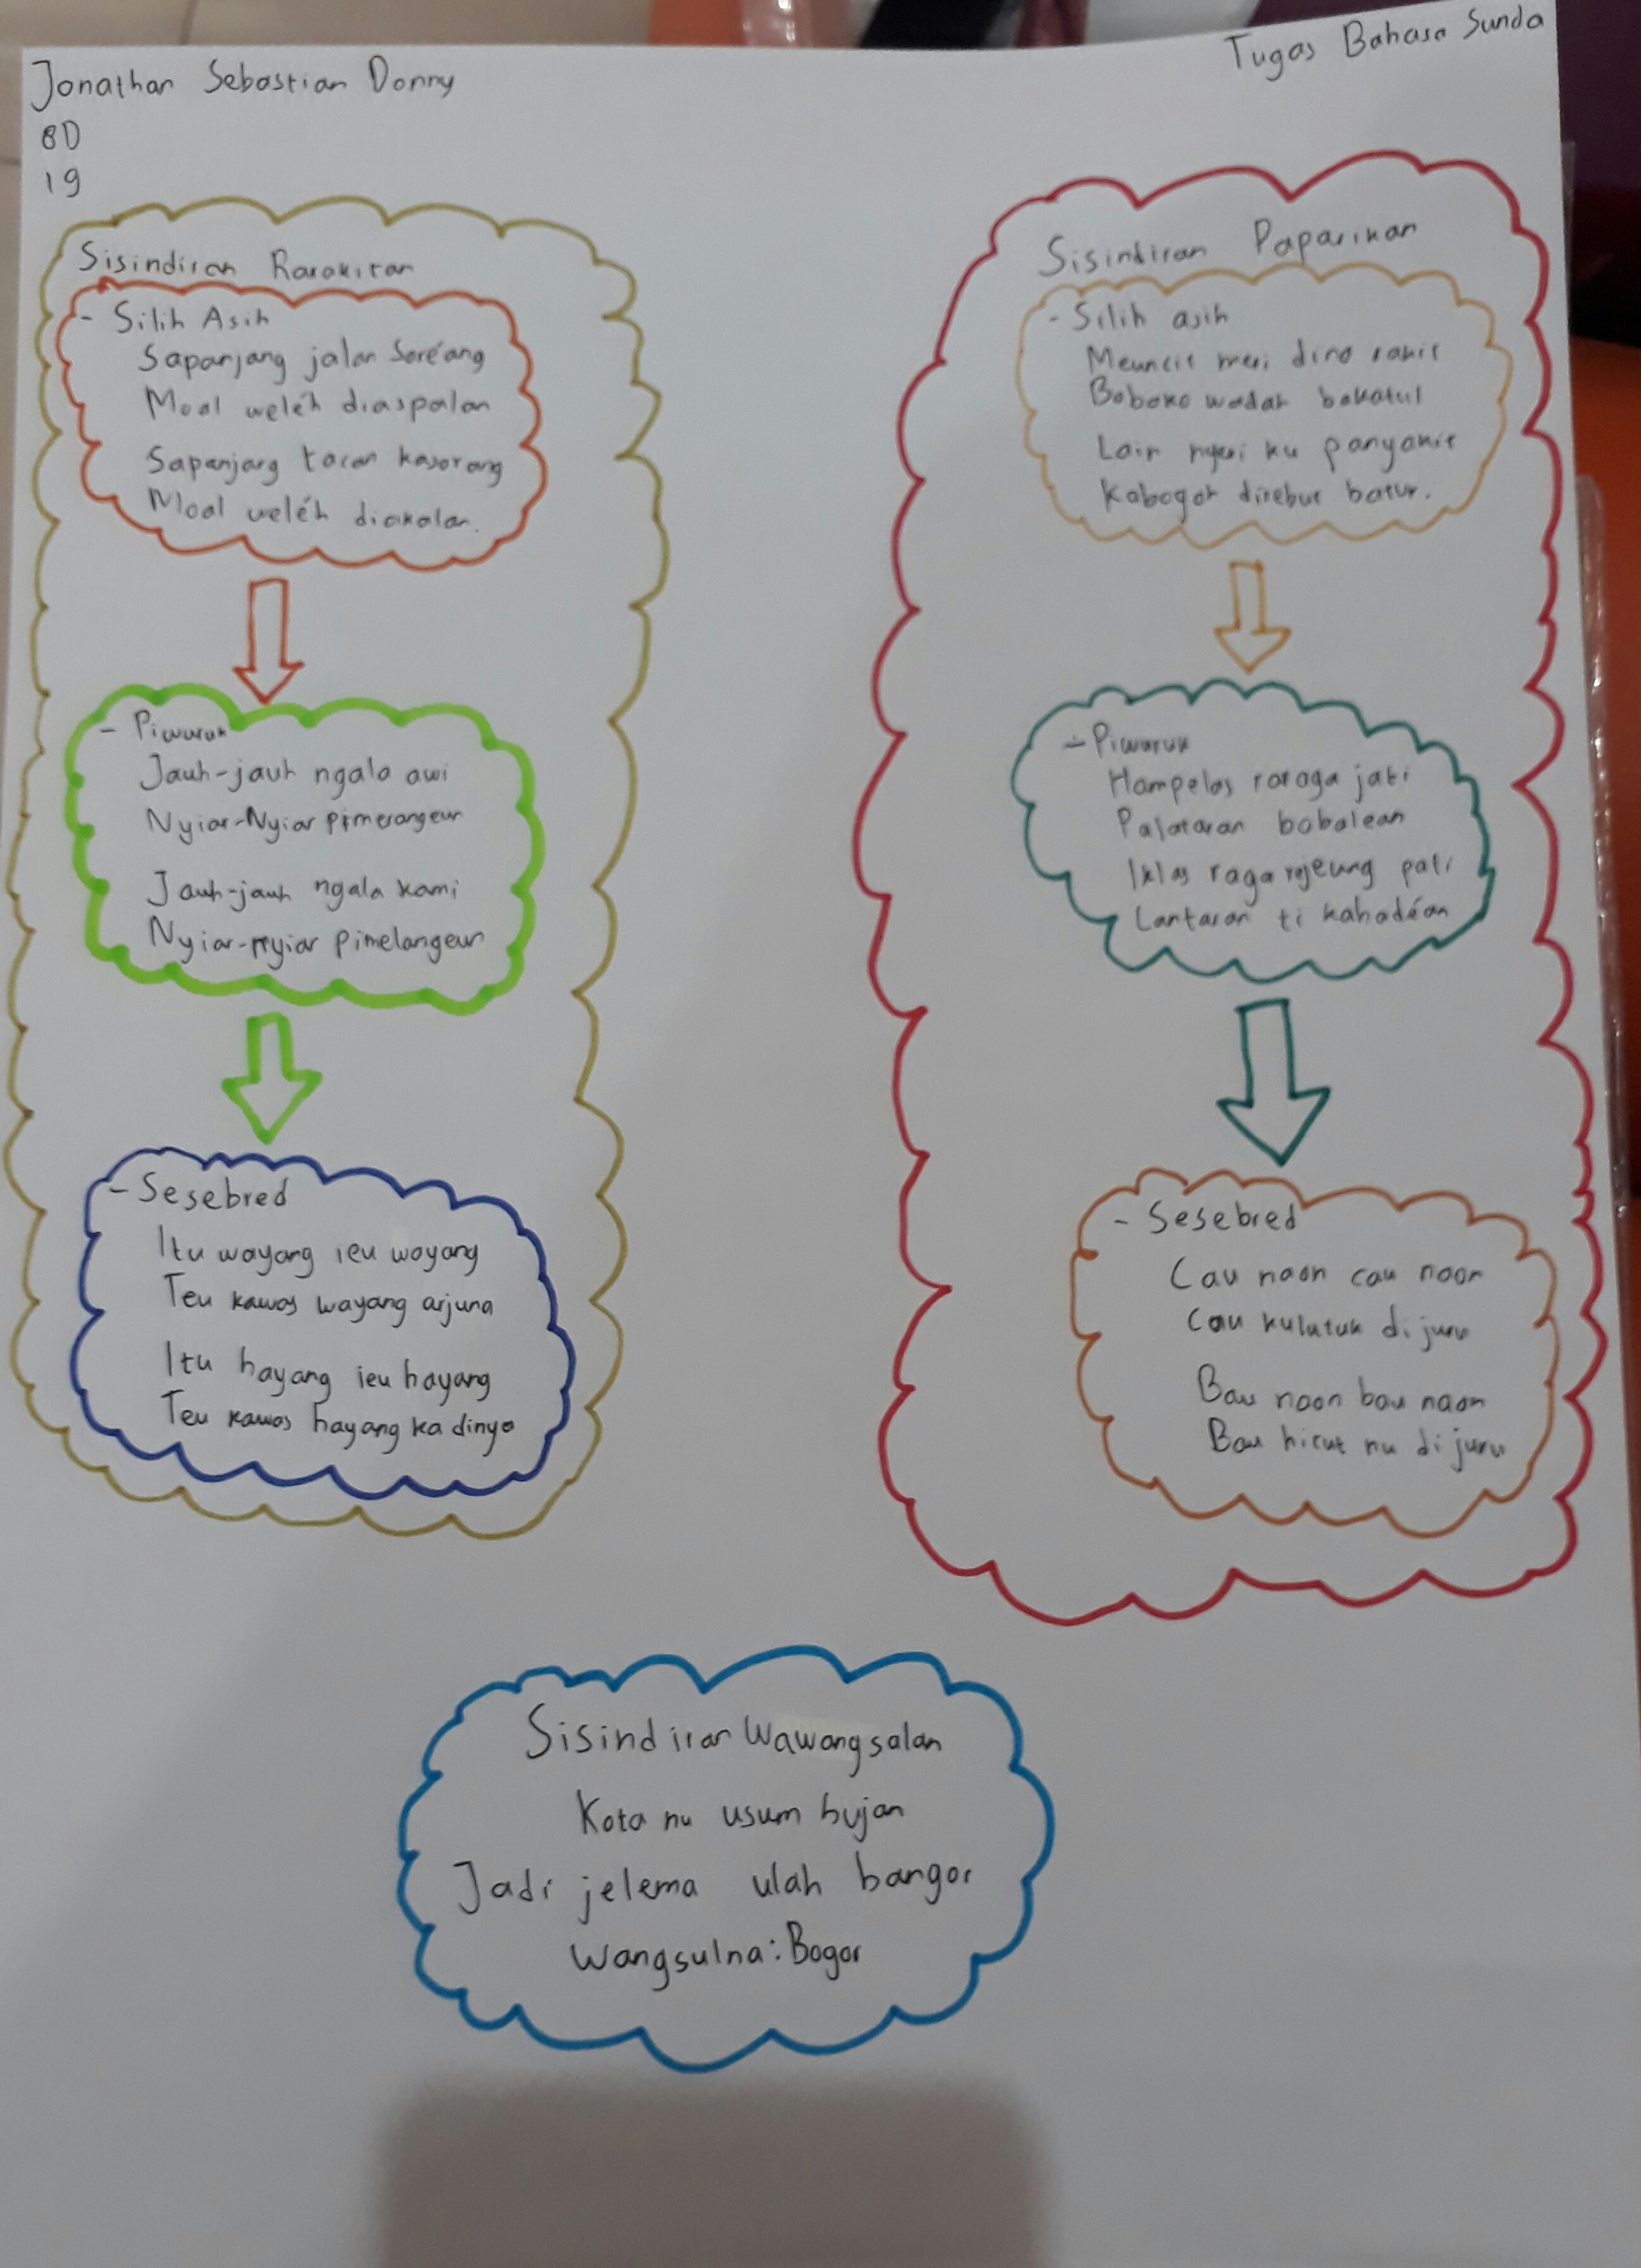 Jonathan Sebastian Donny
8D
19
Tugas Bahasa Sunda
Sisindiran Rarakitan
- Silih Asih
Sapanjang jalan Soréang
Moal weléh diaspalan
Sapanjang tacan kasorang
Moal weléh diakalan.
- Piwuruk
Jauh-jauh ngala awi
Nyiar-Nyiar pimerangeun
Jauh-jauh ngala kami
Nyiar-nyiar pimelangeun
- Sesebred
Itu wayang ieu wayang
Teu kawas wayang arjuna
Itu hayang ieu hayang
Teu kawas hayang ka dinya
Sisindiran Paparikan
- Silih asih
Meuncit meri dina rakit
Boboko wadah bakatul
Lain nyeri ku panyakit
Kabogoh direbut batur.
- Piwuruk
Hampelas raraga jati
Palataran babalean
Iklas raga rejeung pati
Lantaran ti kahadéan
- Sesebred
Cau naon cau naon
Cau kulutuk di juru
Bau naon bau naon
Bau hitut nu di juru
Sisindiran Wawangsalan
Kota nu usum hujan
Jadi jelema ulah bangor
Wangsulna: Bogor